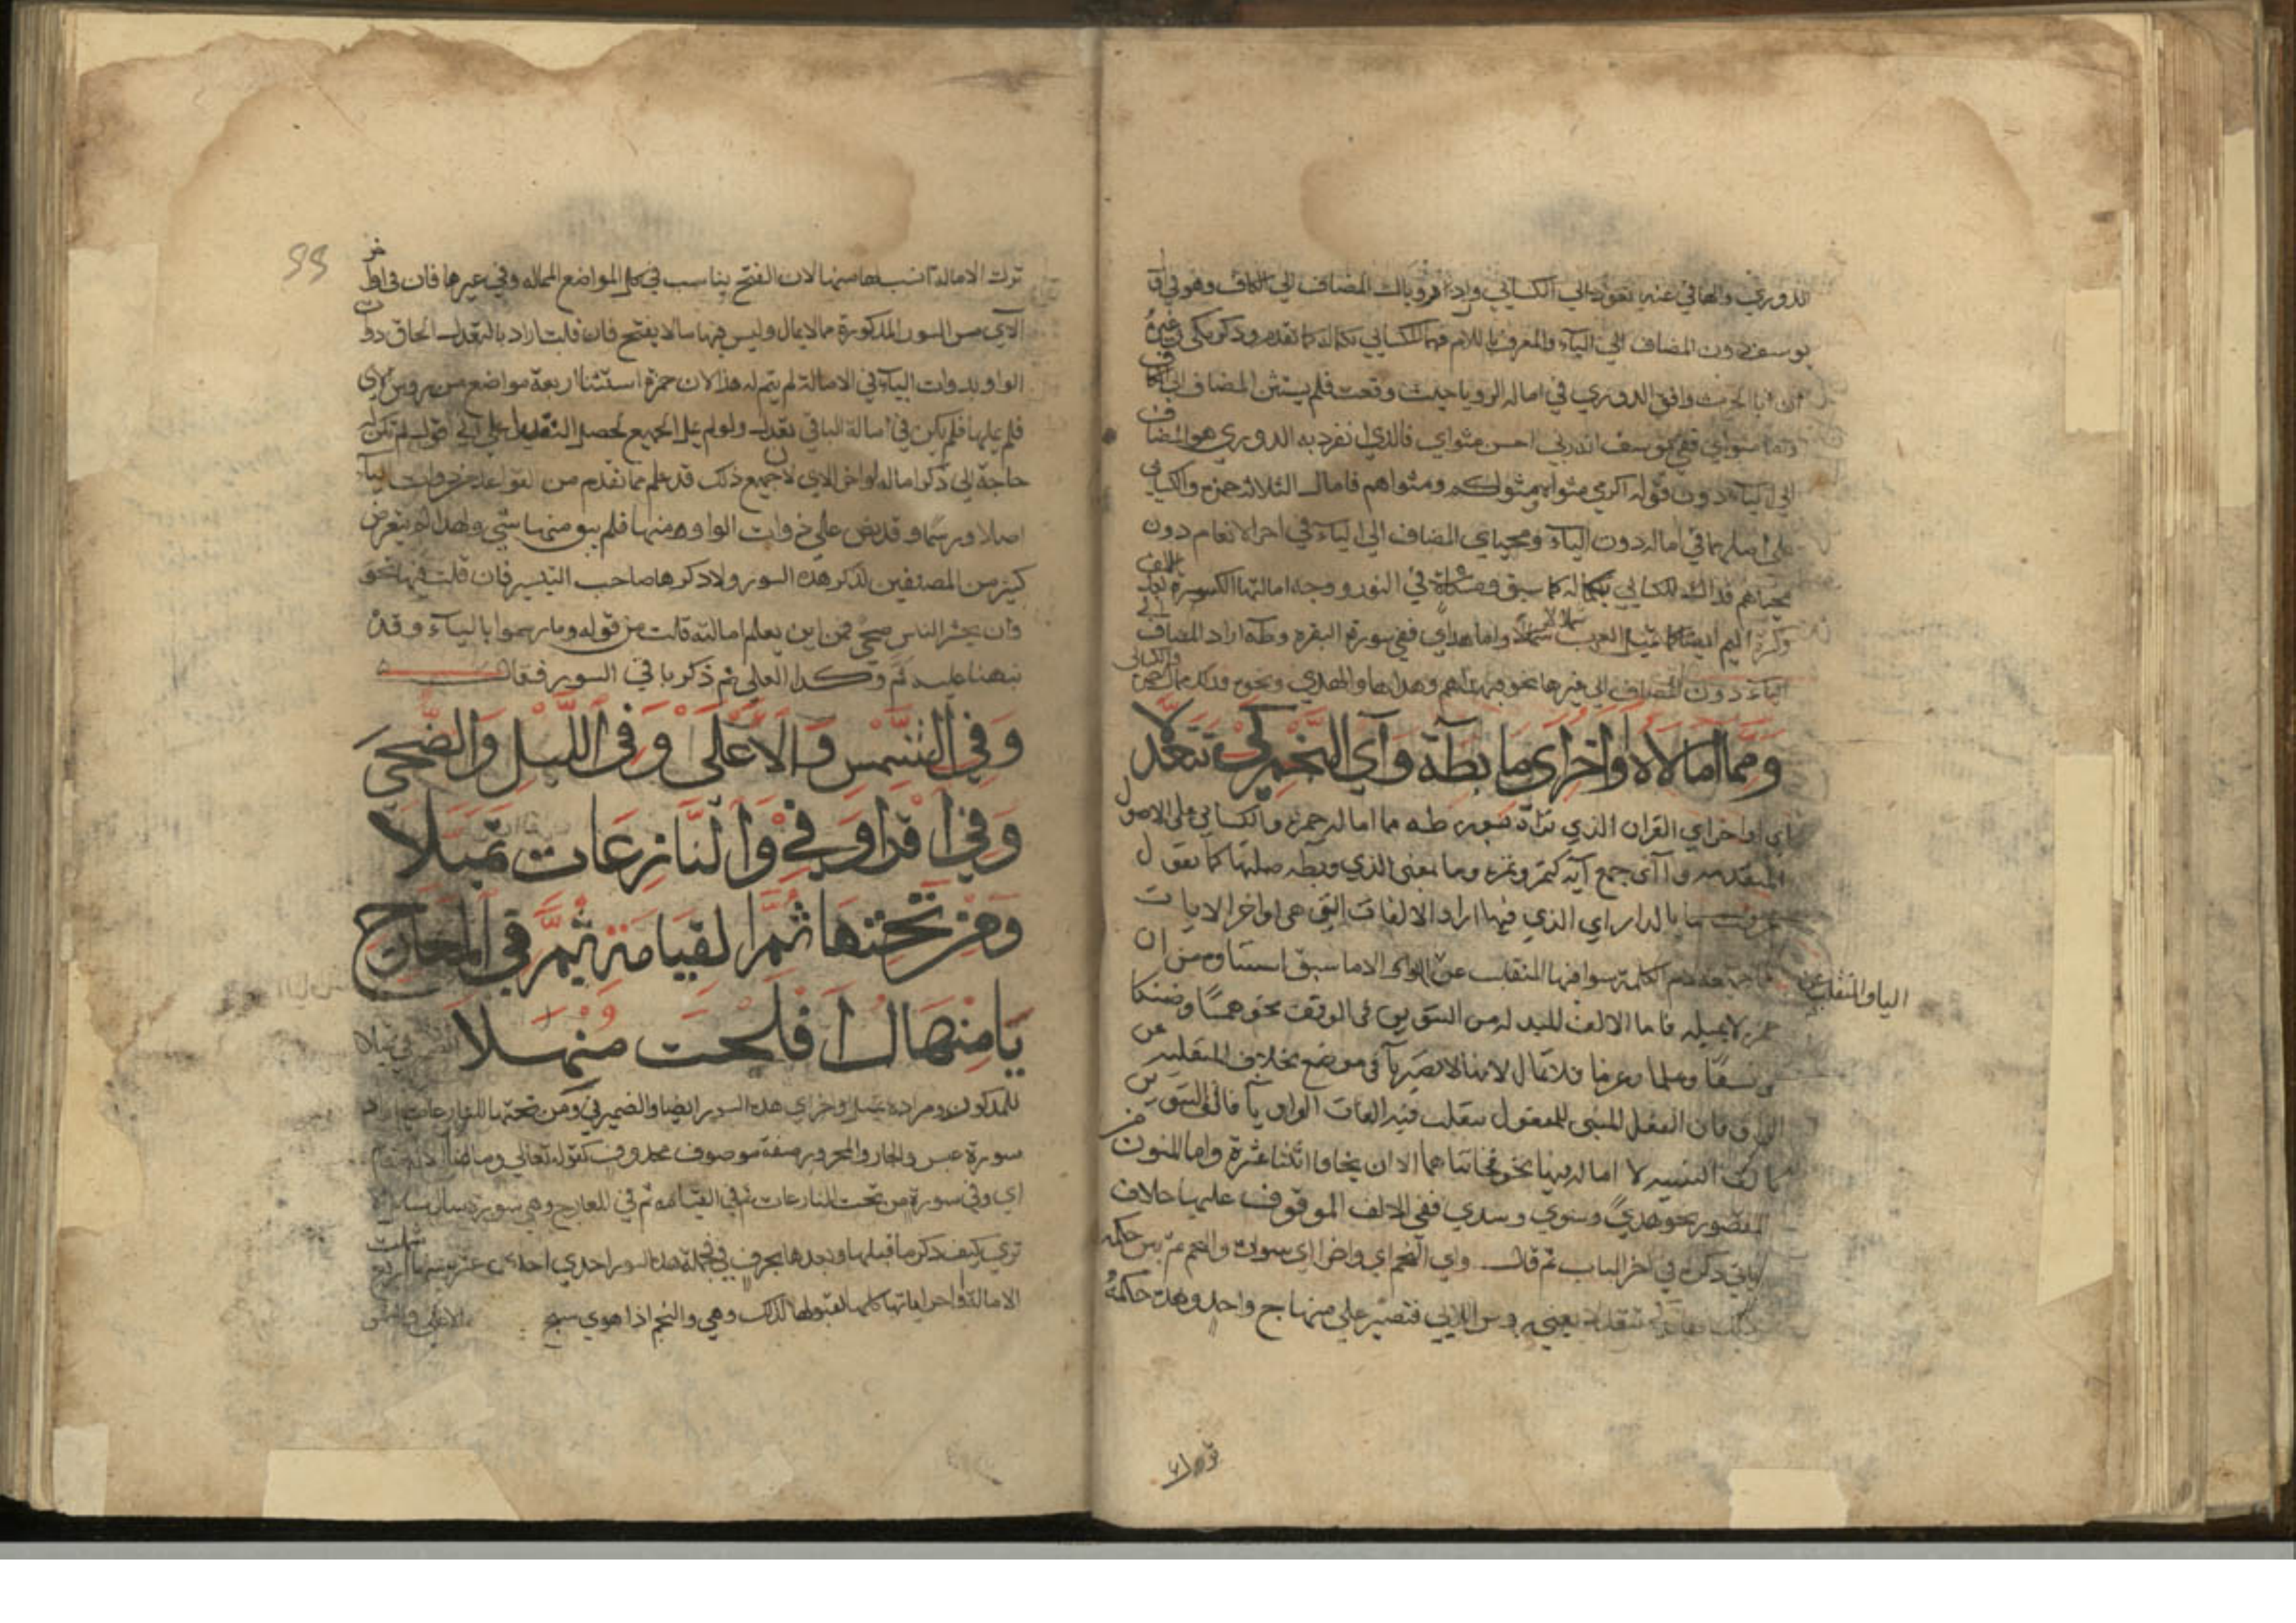 الدوري والهاء في عنه تعود الى الكسائي واراد رؤياك المضاف الى الكاف وهو في
يوسف دون المضاف الى الياء والمعرف باللام فهما للكسائي بكماله كما تقدم وذكر مكي وغيره
ان ابا الحرث وافق الدوري في اماله الرويا حيث وقعت فلم يستثن المضاف الى الكاف
واما مثواي ففي يوسف انه ربي احسن مثواي فالذي انفرد به الدوري هو المضاف
الى الياء دون قوله اكرمي مثواه ومثويكم ومثواهم فامال الثلاثة حمزة والكسائي
على اصلهما في اماله ذوات الياء ومحياي المضاف الى الياء في اخر الانعام دون
محياهم فذاك للكسائي بكماله كما سبق ومشكاة في النور ووجه امالتها الكسرة بعد الالف
وكسرة الميم ايضا كما تميل العرب شملالا واما هداي ففي سورة البقرة وطه اراد المضاف الى
الياء دون المضاف الى غيرها نحو فبهداهم وهداها والهدى ونحوه فذلك ممال لحمزة والكسائي
ومما امالاه اواخر اي ما بطه واي النجم كي تتعدلا
اي اواخر اي القران الذي تراه بسورة طه مما اماله حمزة والكسائي على الاصول
المتقدمة واآي جمع آية كتمر وتمرة وما بمعنى الذي وبطه صلتها كما تقول
عرفت ما بالدار اي الذي فيها اراد الالفات التي هي اواخر الايات
الكلمة سوا فيها المنقلب عن الواو الا ما سبق استثناوه من ان
الياء والمنقلب عن
حمزة لا يميله فاما الالف المبدلة من التنوين في الوقف نحو همسا وضنكا
ونسفا وعلما وعزما فلا تمال لانها لا تصير يآ في موضع بخلاف المنقلبة عن
الواو فان الفعل المبنى للمفعول تنقلب فيه الفات الواو يآ فالف التنوين
كالف التثنية لا امالة فيها نحو فخانتاهما الا ان يخافا اثنتا عشرة واما المنون من
المقصور نحو هدى وسوى وسدى ففي الالف الموقوف عليها خلاف
ياتي ذكره في اخر الباب ثم قال واي النجم اي واخر اي سورة والنجم ثم بين حكمة
ذلك فقال كي تتعدلا يعني روس الآي فتصير على منهاج واحد وهذه حكمة
ترك الامالة انسب لها منها لان الفتح يناسب في كل المواضع الممالة وفي غيرها فان في اواخر
الآي من السور المذكورة ما لا يمال وليس فيها ما لا يفتح فان قلت اراد بالتعدل الحاق ذوات
الواو بذوات الياء في الامالة لم يتم له هذا لان حمزة استثنا اربعة مواضع من روس الاي
فلم يملها فلم يكن في امالة الباقي تعدل ولو اميل الجميع لحصل التعديل على اني اقول لم تكن له
حاجة الى ذكر امالة اواخر الاي لان جميع ذلك قد علم مما تقدم من القواعد من ذوات الياء
اصلا ورسما وقد نص على ذوات الواو منها فلم يبق منها شي ولهذا لم يتعرض
كثير من المصنفين لذكر هذه السور ولا ذكرها صاحب التيسير فان قلت فيها نحو
وان يحشر الناس ضحى فمن اين يعلم امالته قلت من قوله وما رسموا بالياء وقد
نبهنا عليه ثم وكذا العلى ثم ذكر باقي السور فقال
وفي الشمس والاعلى وفي الليل والضحى
وفي اقرا وفي والنازعات تميلا
ومن تحتها ثم القيامة ثم في المعارج
يا منهال افلحت منهلا
سورة عبس والجار والمجرور صفة موصوف محذوف كقوله تعالى وما منا الا له مقام
اي وفي سورة من تحت النازعات ثم في القيامة ثم في المعارج وهي سورة سال سايل
ترى كيف ذكر ما قبلها وبعدها بحرف في فجملة هذه السور احدى عشرة
الامالة اواخر اياتها كلها لقبولها لذلك وهي والنجم اذا هوى سبح
الاعلى